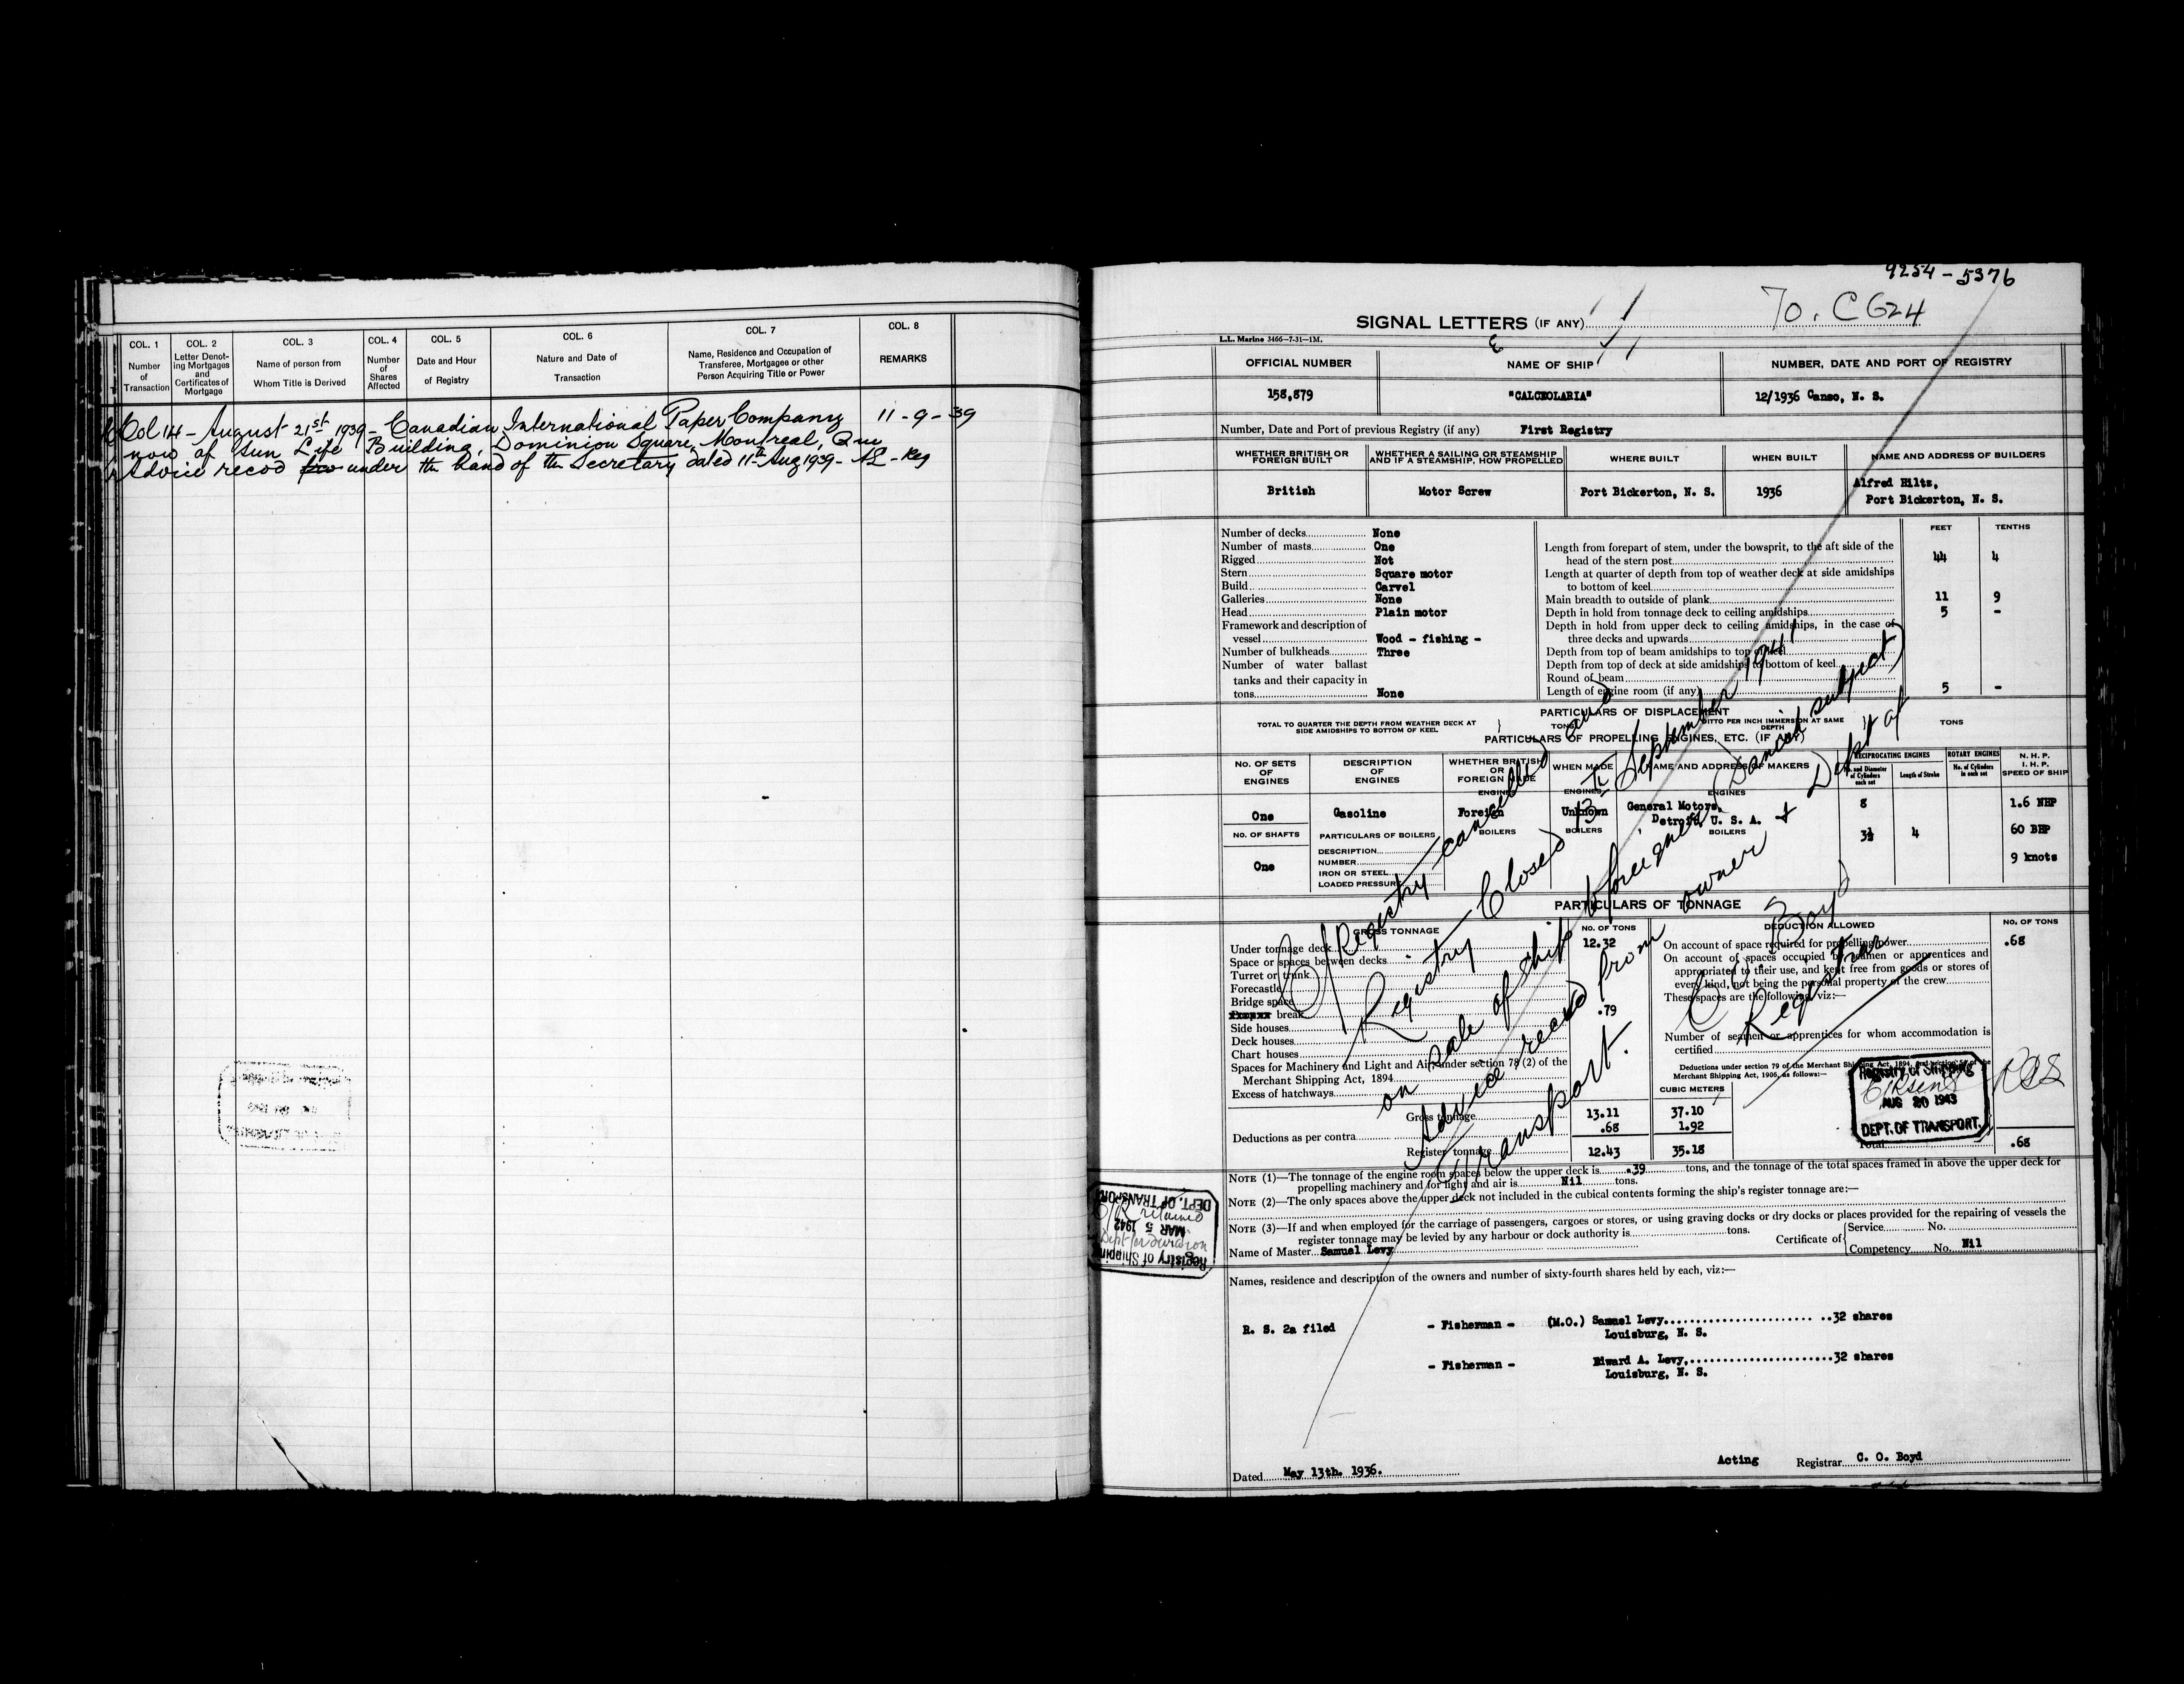 COL. 1
Number
of
Transaction
COL. 2
Letter Denot-
ing Mortgages
and
Certificates of
Mortgage
COL. 3
Name of person from
Whom Title is Derived
COL. 4
Number
of
Shares
Affected
COL. 5
Date and Hour
of Registry
COL. 6
Nature and Date of
Transaction
COL. 7
Name, Residence and Occupation of
Transferee, Mortgagee or other
Person Acquiring Title or Power
COL. 8
REMARKS
Col 14 - August 21st 1939 - Canadian International Paper Company 11-9-39
now of Sun Life Building, Dominion Square, Montreal, Que
Advice recod under the hand of the Secretary dated 11th Aug 1939 -
9254-5376
To. C G24
SIGNAL LETTERS (IF ANY)
L.L. Marine 3466-7-31-1M.
OFFICIAL NUMBER
NAME OF SHIP
NUMBER, DATE AND PORT OF REGISTRY
158,879
"CALCEOLARIA"
12/1936 Canso, N. S.
Number, Date and Port of previous Registry (if any) First Registry
WHETHER BRITISH OR
FOREIGN BUILT
WHETHER A SAILING OR STEAMSHIP
AND IF A STEAMSHIP, HOW PROPELLED
WHERE BUILT
WHEN BUILT
NAME AND ADDRESS OF BUILDERS
British
Motor Screw
Port Bickerton, N. S.
1936
Alfred Hilts,
Port Bickerton, N. S.
FEET TENTHS
Number of decks None
Number of masts One
Rigged Not
Stern Square motor
Build Carvel
Galleries None
Head Plain motor
Framework and description of
vessel Wood - fishing -
Number of bulkheads Three
Number of water ballast
tanks and their capacity in
tons None
Length from forepart of stem, under the bowsprit, to the aft side of the
head of the stern post 44 4
Length at quarter of depth from top of weather deck at side amidships
to bottom of keel
Main breadth to outside of plank 11 9
Depth in hold from tonnage deck to ceiling amidships 5 -
Depth in hold from upper deck to ceiling amidships, in the case of
three decks and upwards
Depth from top of beam amidships to top of keel
Depth from top of deck at side amidships to bottom of keel
Round of beam
Length of engine room (if any) 5 -
PARTICULARS OF DISPLACEMENT
TOTAL TO QUARTER THE DEPTH FROM WEATHER DECK AT
SIDE AMIDSHIPS TO BOTTOM OF KEEL
TONS
DITTO PER INCH IMMERSION AT SAME
DEPTH
TONS
PARTICULARS OF PROPELLING ENGINES, ETC. (IF ANY)
NO. OF SETS
OF
ENGINES
DESCRIPTION
OF
ENGINES
WHETHER BRITISH
OR
FOREIGN MADE
WHEN MADE
NAME AND ADDRESS OF MAKERS
RECIPROCATING ENGINES
No. and Diameter
of Cylinders
each set
Length of Stroke
ROTARY ENGINES
No. of Cylinders
in each set
N. H. P.
I. H. P.
SPEED OF SHIP
ENGINES
ENGINES
ENGINES
One
Gasoline
Foreign
Unknown
General Motors,
Detroit, U. S. A.
8
1.6 NHP
NO. OF SHAFTS
PARTICULARS OF BOILERS
BOILERS
BOILERS
BOILERS
3½
4
60 BHP
One
DESCRIPTION
NUMBER
IRON OR STEEL
LOADED PRESSURE
9 knots
PARTICULARS OF TONNAGE
GROSS TONNAGE
NO. OF TONS
DEDUCTION ALLOWED
NO. OF TONS
Under tonnage deck 12.32
Space or spaces between decks
Turret or trunk
Forecastle
Bridge space
break .79
Side houses
Deck houses
Chart houses
Spaces for Machinery and Light and Air, under section 78 (2) of the
Merchant Shipping Act, 1894
Excess of hatchways
CUBIC METERS
Gross tonnage 13.11 37.10
Deductions as per contra .68 1.92
Register tonnage 12.43 35.18
On account of space required for propelling power .68
On account of spaces occupied by seamen or apprentices and
appropriated to their use, and kept free from goods or stores of
every kind, not being the personal property of the crew
These spaces are the following, viz:—
Number of seamen or apprentices for whom accommodation is
certified
Deductions under section 79 of the Merchant Shipping Act, 1894, and section 54 of the
Merchant Shipping Act, 1906, as follows:—
Total .68
Registry cancelled and
Registry Closed 13th September 1941
on sale of ship to foreigner (Danish subject)
Advice recod from owner & Dept of
Transport.
C. O. Boyd
Registrar
Registry of Shipping
AUG 20 1943
DEPT. OF TRANSPORT.
NOTE (1)—The tonnage of the engine room spaces below the upper deck is .39 tons, and the tonnage of the total spaces framed in above the upper deck for
propelling machinery and for light and air is Nil tons.
NOTE (2)—The only spaces above the upper deck not included in the cubical contents forming the ship's register tonnage are:—
NOTE (3)—If and when employed for the carriage of passengers, cargoes or stores, or using graving docks or dry docks or places provided for the repairing of vessels the
register tonnage may be levied by any harbour or dock authority is tons.
Name of Master Samuel Levy
Certificate of
Service No.
Competency No. Nil
Registry of Shipping
MAR 5 1942
DEPT. OF TRANSPORT
Names, residence and description of the owners and number of sixty-fourth shares held by each, viz:—
R. S. 2a filed - Fisherman - (M.O.) Samuel Levy 32 shares
Louisburg, N. S.
- Fisherman - Edward A. Levy, 32 shares
Louisburg, N. S.
Dated May 13th. 1936.
Acting Registrar C. O. Boyd